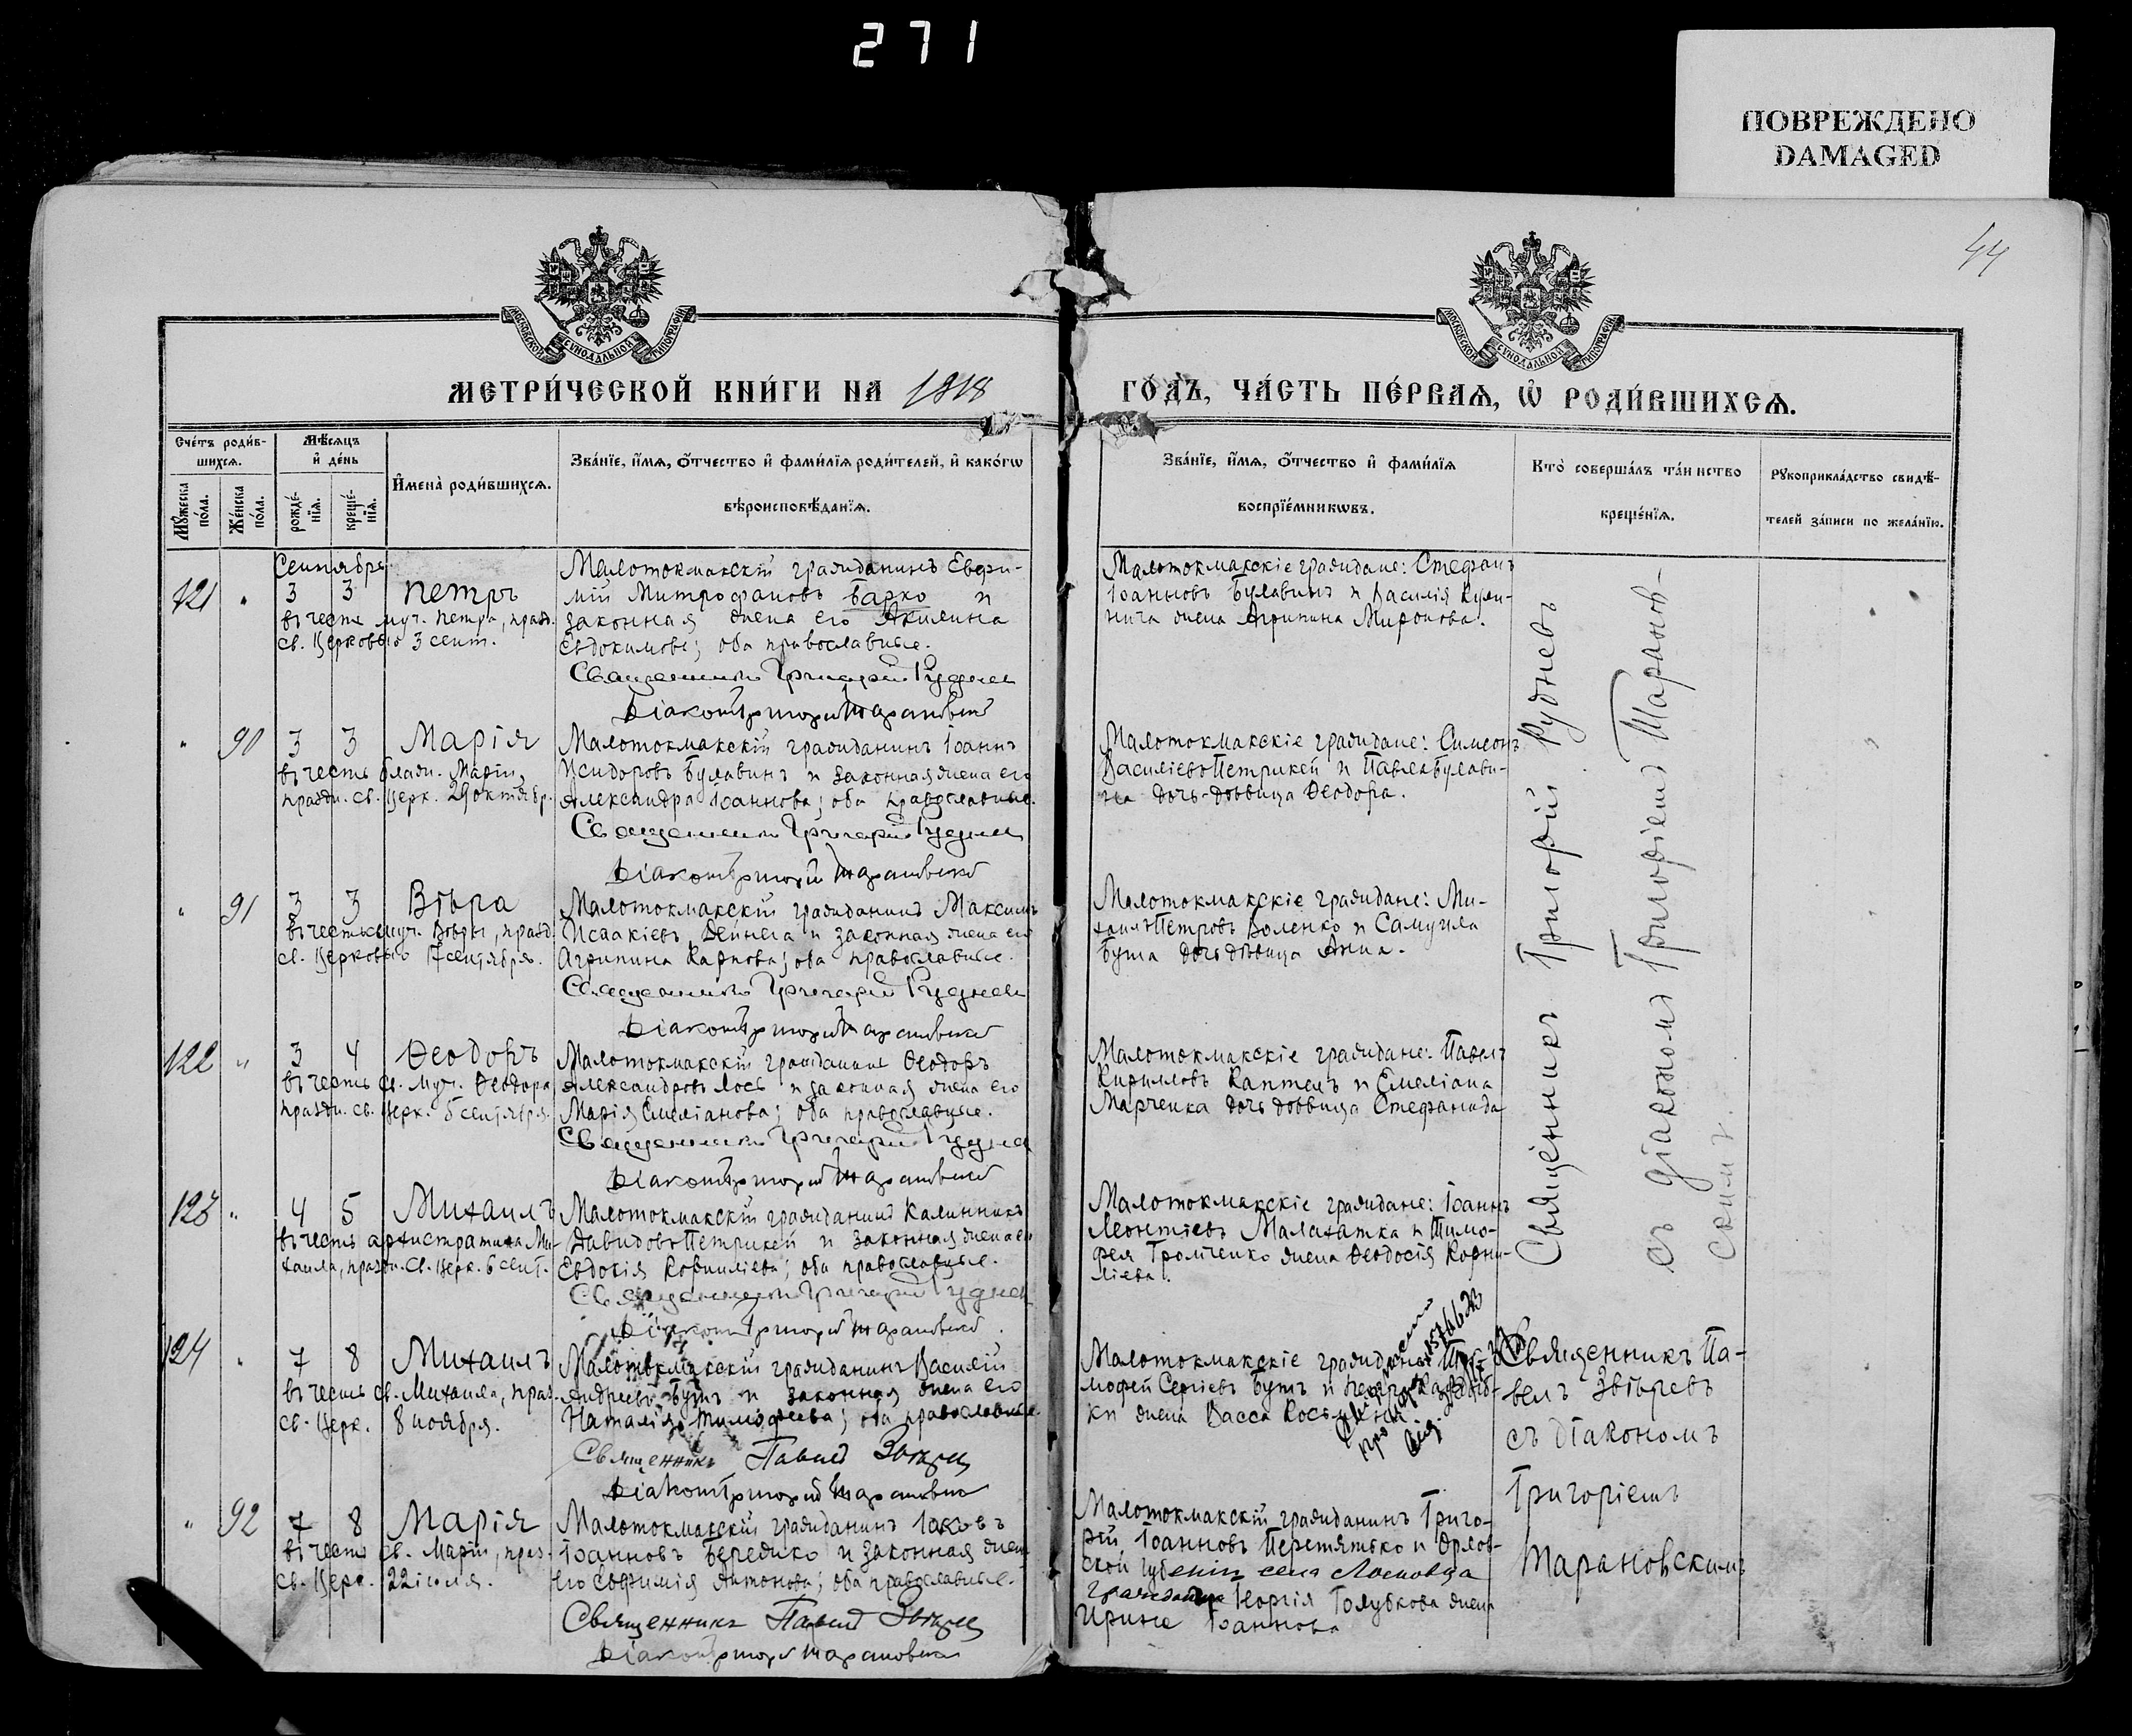 271
ПОВРЕЖДЕНО
DAMAGED
44
МОСКОВСКОЙ СѴНОДАЛЬНОЙ ТИПОГРАФІИ
МОСКОВСКОЙ СѴНОДАЛЬНОЙ ТИПОГРАФІИ
МЕТРИ́ЧЕСКОЙ КНИ́ГИ НА 1918
ГО́ДЪ, ЧА́СТЬ ПЕ́РВАѦ, Ѡ҆ РОДИ́ВШИХСѦ.
Сче́тъ роди́в-
шихсѧ.
Мѣ́сѧцъ
и҆ де́нь
Мꙋ́жеска по́ла.
Же́нска по́ла.
рожде́-
нїѧ.
креще́-
нїѧ.
И҆мена̀ роди́вшихсѧ.
Зва́нїе, и҆́мѧ, ѻ҆́тчество и҆ фами́лїѧ роди́телей, и҆ како́гѡ
вѣроисповѣ́данїѧ.
Зва́нїе, и҆́мѧ, ѻ҆́тчество и҆ фами́лїѧ
воспрїе́мникѡвъ.
Кто̀ соверша́лъ та́инство
креще́нїѧ.
Рꙋкоприкла́дство свидѣ́-
телей за́писи по жела́нїю.
Сентября
121 " 3 3 Петръ
въ честь муч. Петра, празд.
св. Церковью 3 сент.
Малотокмакскій гражданинъ Евфи-
мій Митрофановъ Барко и
законная жена его Акилина
Евдокимова; оба православные.
Священникъ Григорій Рудневъ
Діаконъ Григорій Тарановскій
Малотокмакскіе граждане: Стефанъ
Іоанновъ Булавинъ и Василія Кули-
нича жена Агрипина Миронова.
" 90 3 3 Марія
въ честь блаж. Маріи,
праздн. св. Церк. 29 октября.
Малотокмакскій гражданинъ Іоаннъ
Исидоровъ Булавинъ и законная жена его
Александра Іоаннова; оба православные.
Священникъ Григорій Рудневъ
Діаконъ Григорій Тарановскій
Малотокмакскіе граждане: Симеонъ
Василіевъ Петрикей и Павла Булави-
на дочь-дѣвица Ѳеодора.
" 91 3 3 Вѣра
въ честь муч. Вѣры, празд.
св. Церковью 17 сентября.
Малотокмакскій гражданинъ Максимъ
Исаакіевъ Дейнега и законная жена его
Агрипина Карпова; оба православные.
Священникъ Григорій Рудневъ
Діаконъ Григорій Тарановскій
Малотокмакскіе граждане: Ми-
хаилъ Петровъ Воленко и Самуила
Бута дочь дѣвица Анна.
122 " 3 4 Ѳеодоръ
въ честь св. муч. Ѳеодора,
праздн. св. Церк. 5 сентября.
Малотокмакскій гражданинъ Ѳеодоръ
Александровъ Лось и законная жена его
Марія Емеліанова; оба православные.
Священникъ Григорій Рудневъ
Діаконъ Григорій Тарановскій
Малотокмакскіе граждане: Павелъ
Кирилловъ Каптелъ и Емеліана
Марченка дочь дѣвица Стефанида
123 " 4 5 Михаилъ
въ честь архистратига Ми-
хаила, праздн. св. Церк. 6 сент.
Малотокмакскій гражданинъ Калинникъ
Давидовъ Петрикей и законная жена его
Евдокія Корниліева; оба православные.
Священникъ Григорій Рудневъ
Діаконъ Григорій Тарановскій
Малотокмакскіе граждане: Іоаннъ
Леонтіевъ Малахатка и Тимо-
фея Громченко жена Ѳеодосія Корни-
ліева.
Священникъ Григорій Рудневъ
съ діакономъ Григоріемъ Таранов-
скимъ.
124 " 7 8 Михаилъ
въ честь св. Михаила, празд.
св. Церк. 8 ноября.
Малотокмакскій гражданинъ Василій
Андреевъ Бутъ и законная жена его
Наталія Тимофеева; оба православные.
Священникъ Павелъ Звѣревъ
Діаконъ Григорій Тарановскій
Малотокмакскіе граждане: Ти-
мофей Сергіевъ Бутъ и
ки жена Васса Косьмина.
Священникъ Па-
велъ Звѣревъ
съ діакономъ
Григоріемъ
Тарановскимъ
" 92 7 8 Марія
въ честь св. Маріи, праз.
св. Церк. 22 іюля.
Малотокмакскій гражданинъ Іаковъ
Іоанновъ Бережко и законная жена
его Евфимія Антонова; оба православные.
Священникъ Павелъ Звѣревъ
Діаконъ Григорій Тарановскій
Малотокмакскій гражданинъ Григо-
рій Іоанновъ Перетятько и Орлов-
ской губерніи села
гражданина Георгія Голубкова жена
Ирина Іоаннова